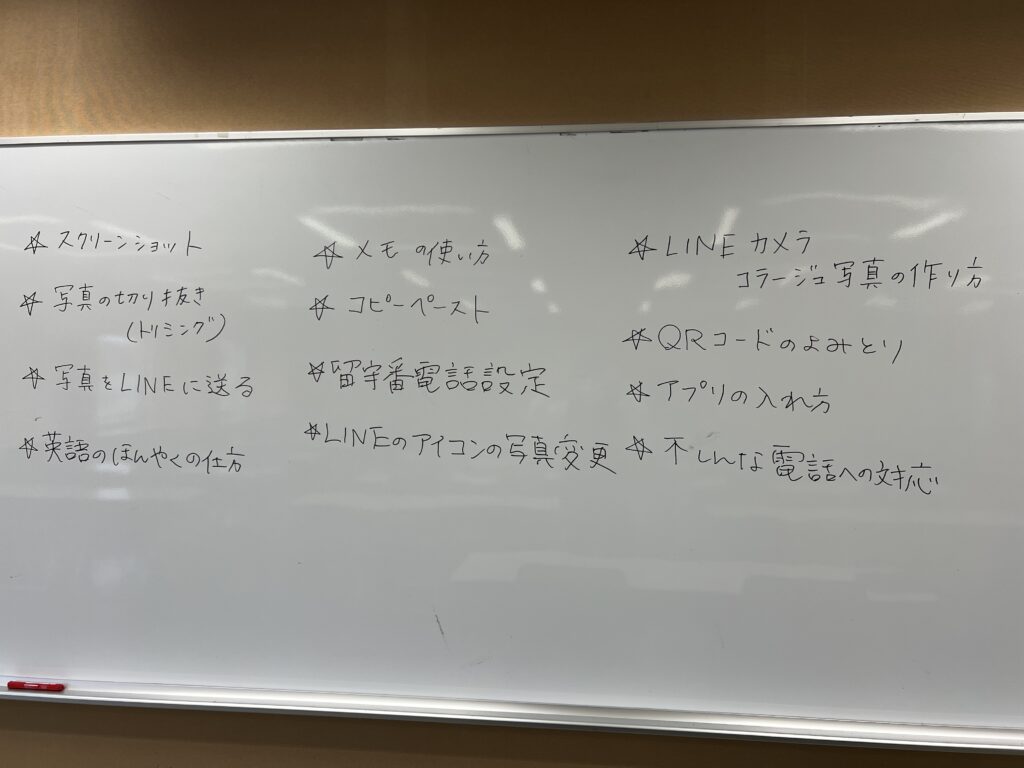 ☆ スクリーンショット
☆ 写真の切り抜き
(トリミング)
☆ 写真をLINEに送る
☆ 英語のほんやくの仕方
☆ メモの使い方
☆ コピーペースト
☆ 留守番電話設定
☆ LINEのアイコンの写真変更
☆ LINEカメラ
コラージュ写真の作り方
☆ QRコードのよみとり
☆ アプリの入れ方
☆ 不しんな電話への対応